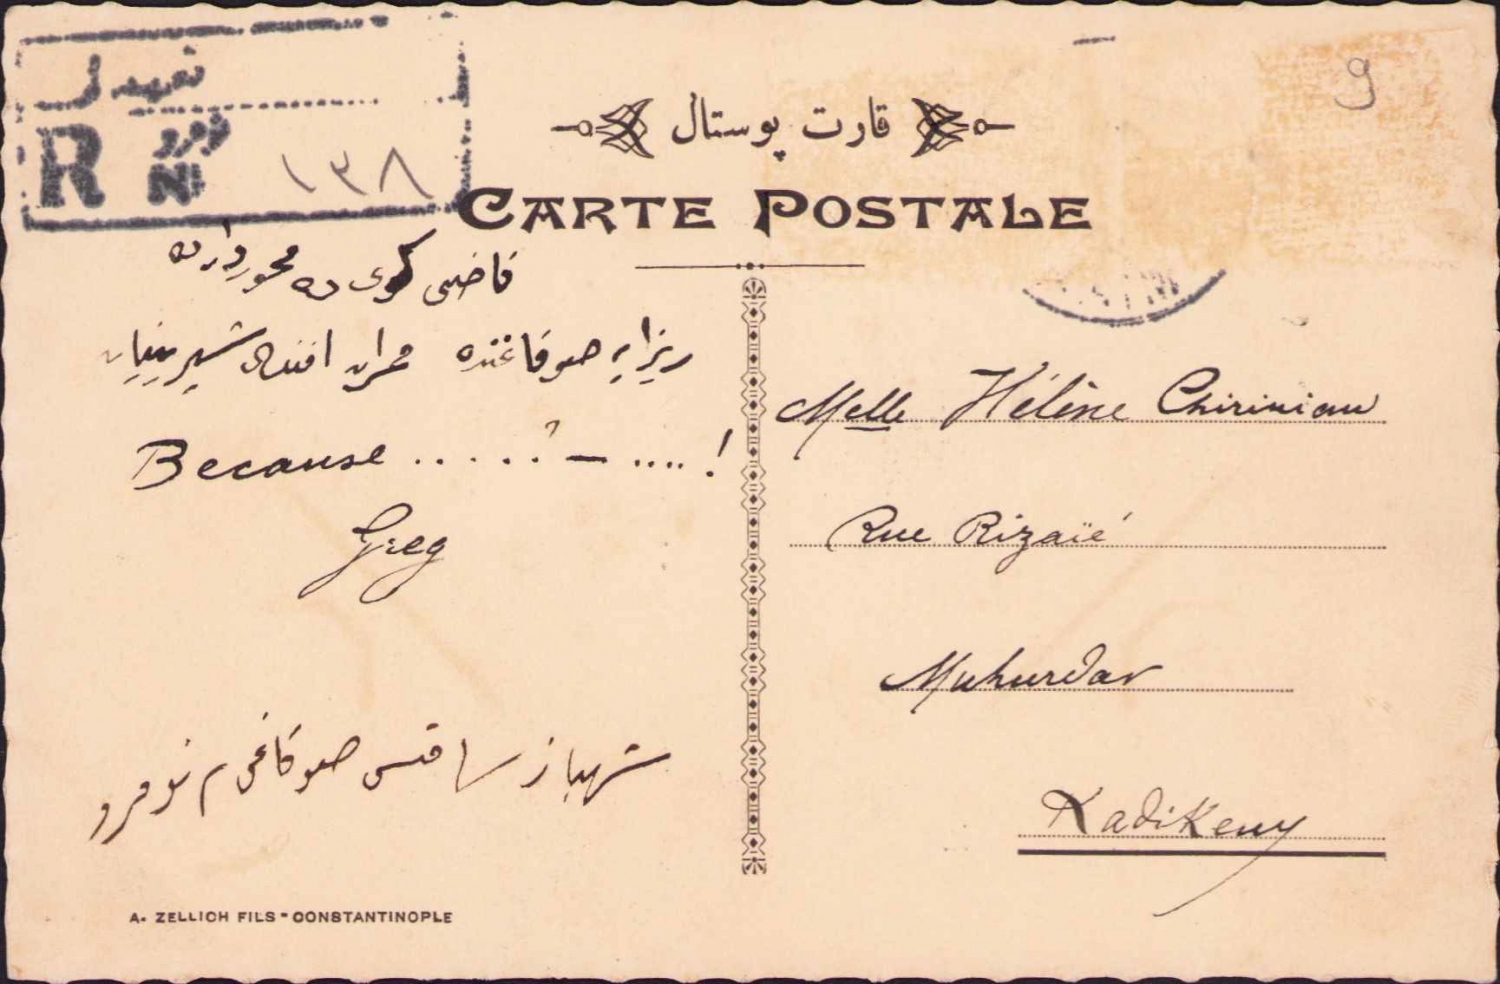 R
نومرو
№ ١٣٨
قارت پوستال
CARTE POSTALE
قاضی کوی ده محوردارده
صوقاغنده افندی شیرینیان
Because ..... ? — .... !
Greg
شهباز صوقاغی نومرو
A. ZELLICH FILS - CONSTANTINOPLE
Melle Hélène Chirinian
Rue Rizaïé
Muhurdar
Kadikeuy
9